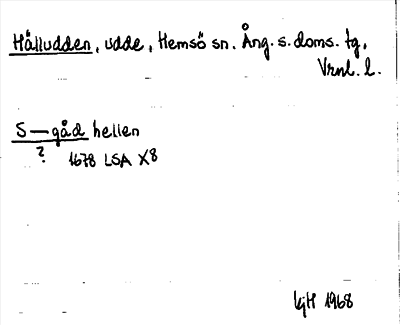 Hälludden, udde, Hemsö sn. Ång. s. doms. tg,
Vrnl. l.
S—gåd hellen
? 1678 LSA X8
LjH 1968